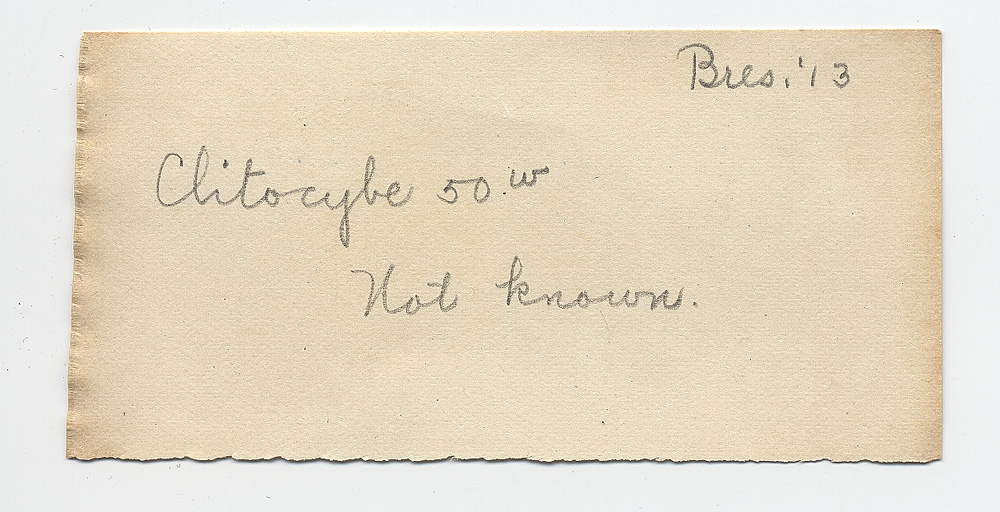 Bres. '13
Clitocybe 50.w
Not known.